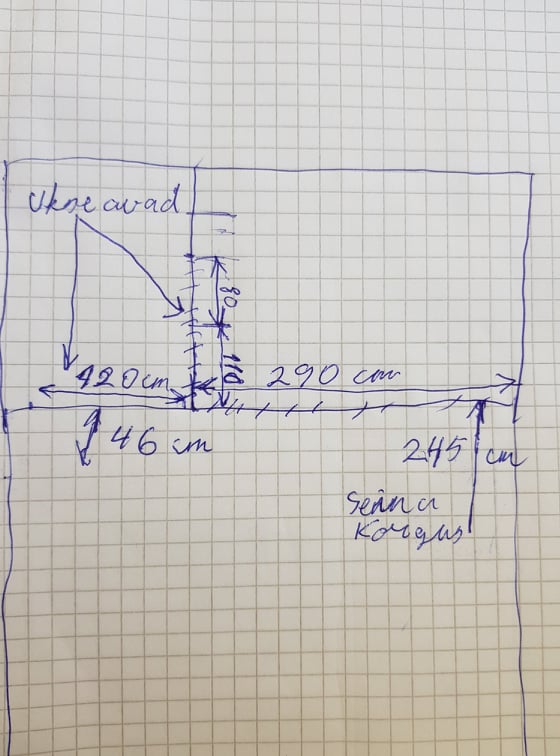 Ukse avad
80
110
120 cm
290 cm
46 cm
245 cm
Seina
Kõrgus